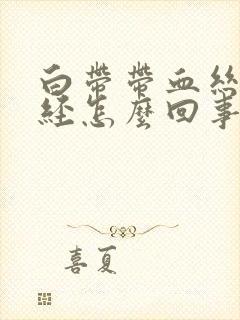 白帶帶血絲
經怎麼回事
喜夏